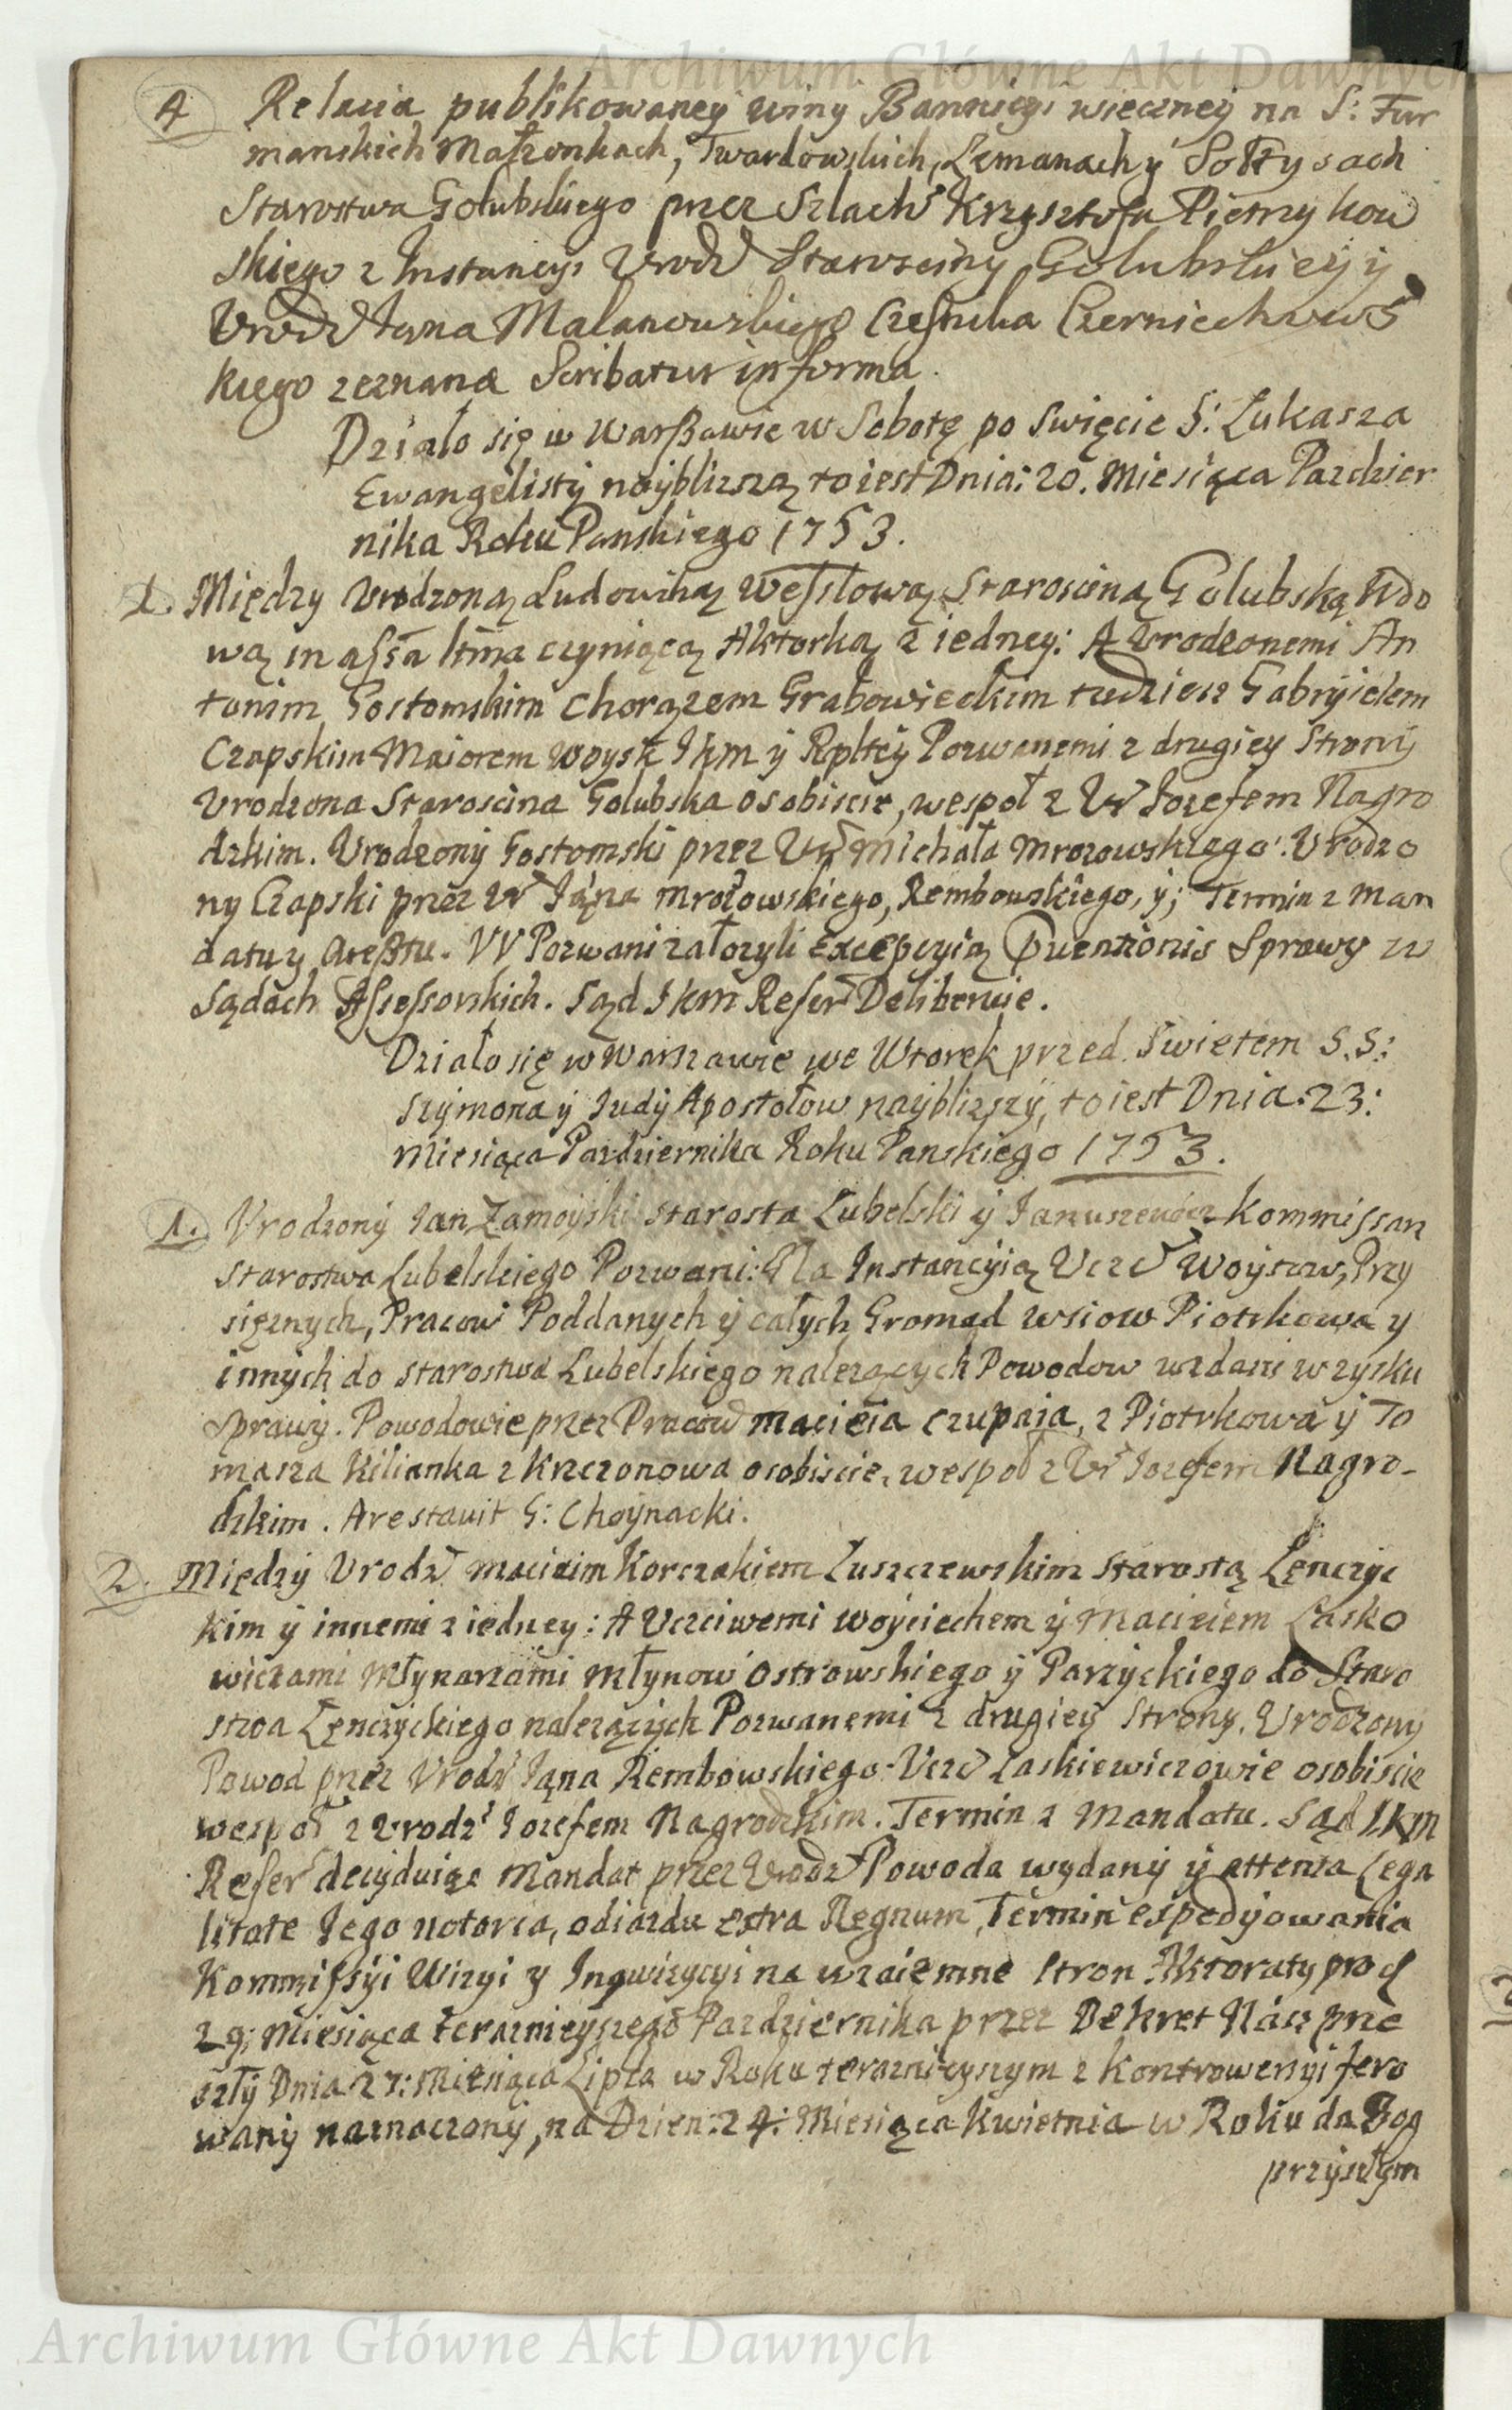 Archiwum Główne Akt Dawnych
4 Relacia publikowaney winy Banniciji wieczney na S: Fur
manskich Małżonkach, Twardowskich, Lemanach y Sołtysach
Starostwa Golubskiego przez Szlach Krzysztofa Pietrzykow
skiego z Instancyi Urodz Starosciny Golubskiey y
Urodz Jana Malanowskiego Czesnika Czerniechows
kiego zeznana Scribatur in forma.
Działo się w Warszawie w Sobotę po Swięcie S: Łukasza
Ewangelisty nayblizszą to iest Dnia: 20. Miesiąca Pazdzier
nika Roku Panskiego 1753.
1. Między Urodzoną Ludowiką Wesslową Starosciną Golubską Wdo
wą in assa ltma czyniącą Aktorką z iedney: A Urodzonemi An
tonim Gostomskim Chorązem Grabowieckim tudziesz Gabryielem
Czapskim Maiorem Woysk JKM y Rpltey Pozwanemi z drugiey Strony
Urodzona Staroscina Golubska osobiscie, wespoł z Ur Jozefem Nagro
dzkim. Urodzony Gostomski przez Ur Michała Mrozowskiego. Urodzo
ny Czapski przez Ur Jana Mrozowskiego, Rembowskiego, y; Termin z Man
datu y Aresztu. UU Pozwani załozyli Excepcyią Prventionis Sprawy w
Sądach Assessorskich. Sąd JKM Refer Deliberuie.
Działo się w Warszawie we Wtorek przed Swietem S.S:
Szymona y Judy Apostołow nayblizszy, to iest Dnia: 23:
Miesiąca Pazdziernika Roku Panskiego 1753.
1. Urodzony Jan Zamoyski Starosta Lubelski y Januszewicz Kommissarz
Starostwa Lubelskiego Pozwani: Na Instancyią Ucz Woytow, Przy
sięznych, Pracow Poddanych y całych Gromad wsiow Piotrkowa y
innych do Starostwa Lubelskiego nalezących Powodow wzdani w zysku
Sprawy. Powodowie przez Pracow Macieia Czupaja, z Piotrkowa y To
masza Kilianka z Krzczonowa osobiscie, wespoł z Ur Jozefem Nagro-
dzkim. Arestavit G: Choynacki.
2. Między Urodz Macieim Korczakiem Łuszczewskim Starostą Lęnczyc
kim y innemi z iedney: A Uczciwemi Woyciechem y Macieiem Lasko
wiczami Młynarzami Młynow Ostrowskiego y Parzyckiego do Staro
stwa Lęnczyckiego nalezących Pozwanemi z drugiey Strony. Urodzony
Powod przez Urodz Jana Rembowskiego. Ucz Laskiewiczowie osobiscie
wespoł z Urodz Jozefem Nagrodzkim. Termin z Mandatu. Sąd JKM
Refer decyduiąc Mandat przez Urodz Powoda wydany y attenta Lega
litate Jego notoria, odiazdu extra Regnum, Termin expedyowania
Kommissyi Wizyi y Inqwizycyi na wzaiemne Stron Aktoraty pro d
29: Miesiąca teraznieyszego Pazdziernika przez Dekret Nasz prze
szły Dnia 27: Miesiąca Lipca w Roku teraznieyszym z Kontrowersyi fero
wany naznaczony, na Dzien: 24: Miesiąca Kwietnia w Roku da Bog
przyszłym
Archiwum Główne Akt Dawnych